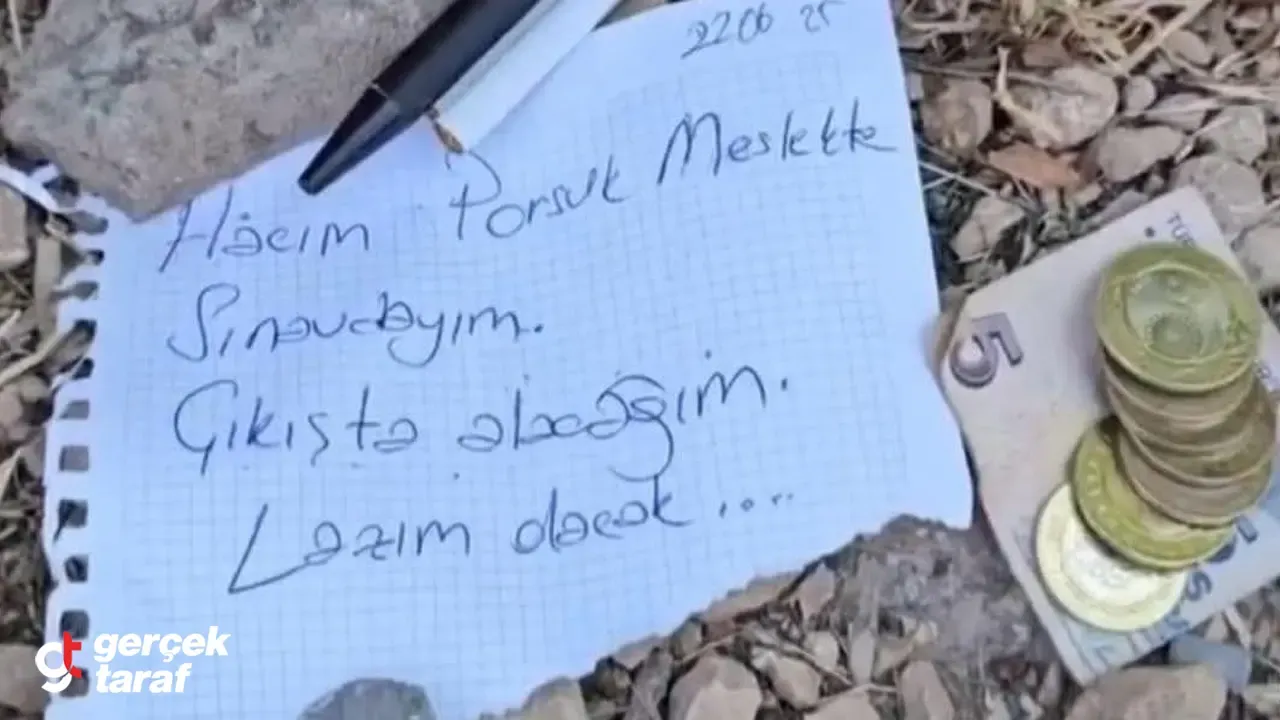 22 06 25
Hacım Porsuk Meslekte
Sınavdayım.
Çıkışta alacağım.
Lazım olacak ....
5
gerçek
taraf